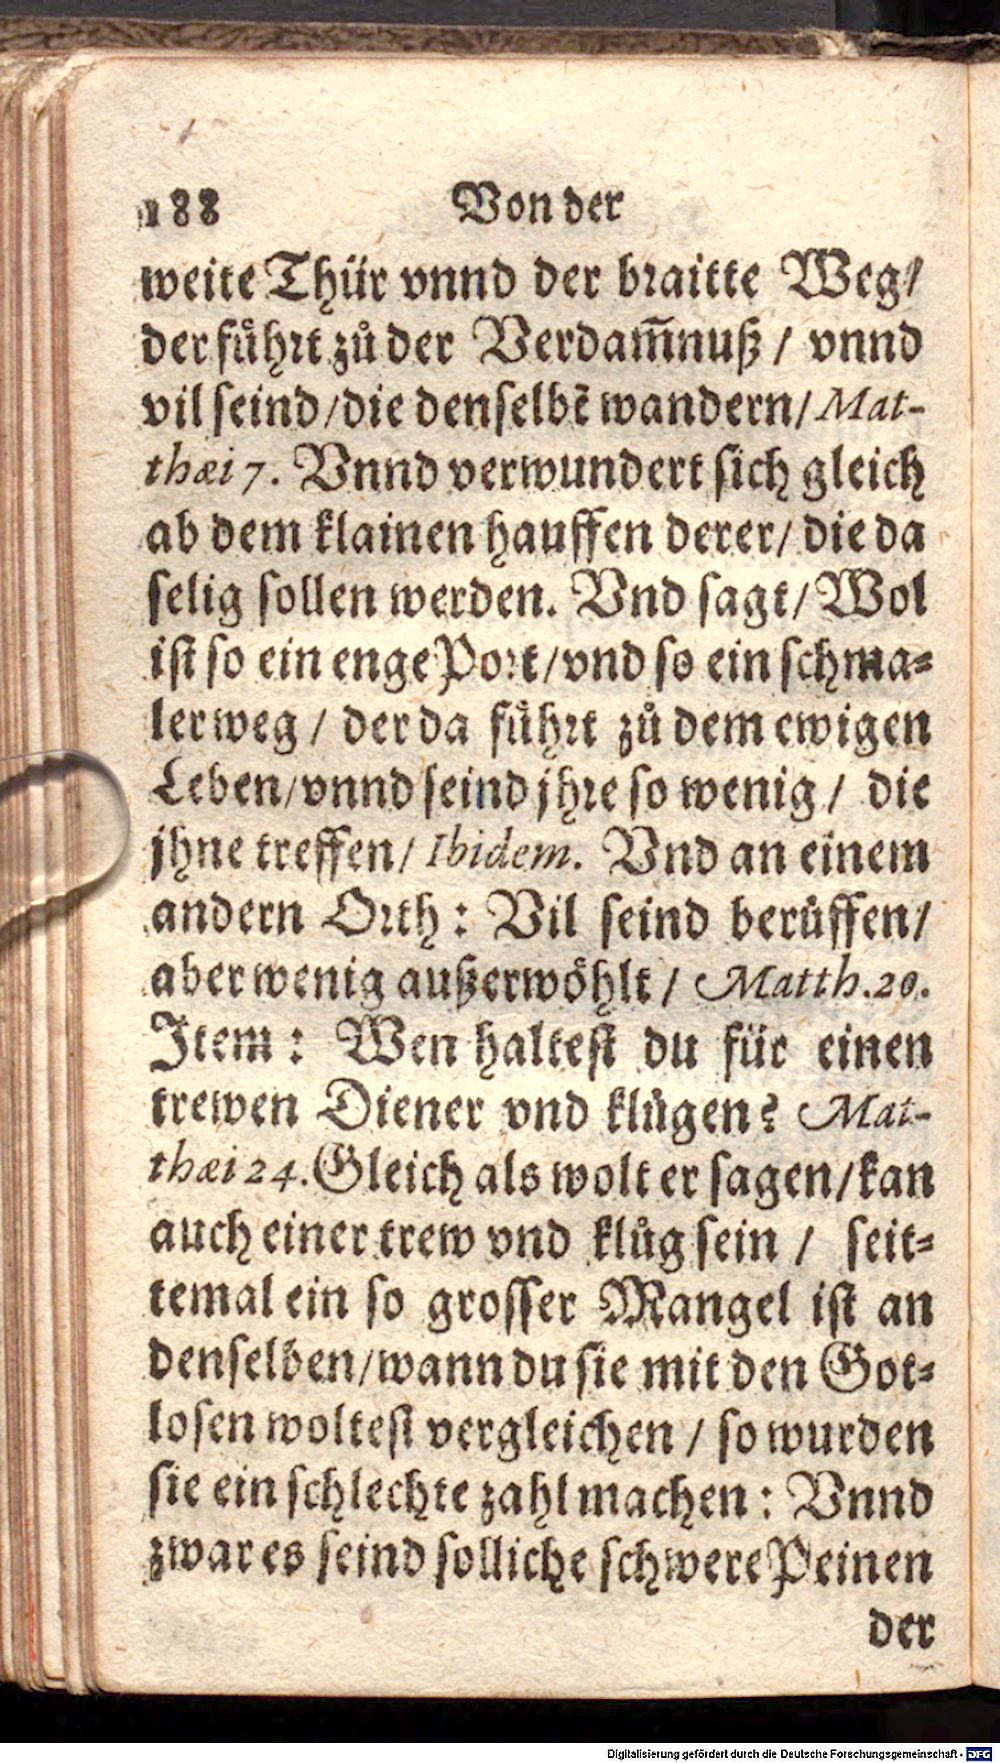 188 Von der
weite Thür vnnd der braitte Weg/
der fuͤhrt zů der Verdam̃nuß / vnnd
vil seind/die denselbẽ wandern/Mat-
thæi 7. Vnnd verwundert sich gleich
ab dem klainen hauffen derer/ die da
selig sollen werden. Vnd sagt/Wol
ist so ein enge Port/vnd so ein schma-
ler weg / der da fuͤhrt zů dem ewigen
Leben/vnnd seind jhre so wenig / die
jhne treffen/ Ibidem. Vnd an einem
andern Orth : Vil seind berůffen/
aber wenig außerwoͤhlt / Matth.20.
Item : Wen haltest du für einen
trewen Diener vnd klůgen? Mat-
thæi 24. Gleich als wolt er sagen/kan
auch einer trew vnd klůg sein / seit-
temal ein so grosser Mangel ist an
denselben/wann du sie mit den Got-
losen woltest vergleichen / so wurden
sie ein schlechte zahl machen : Vnnd
zwar es seind solliche schwere Peinen
der
Digitalisierung gefördert durch die Deutsche Forschungsgemeinschaft - DFG